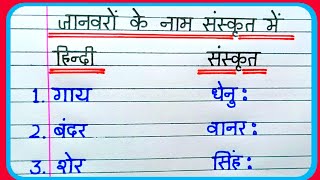 जानवरों के नाम संस्कृत में
हिन्दी संस्कृत
1. गाय धेनु:
2. बंदर वानर:
3. शेर सिंह: